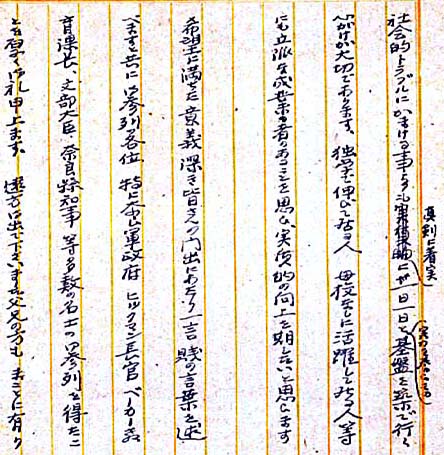 社会的トラブルにかまける事よりも 真剣に着実に 一日一日と基盤を築て行く
心がけが大切であります。 独学で伸びて居る人 母校なしに活躍して居る人等
にも立派な成業者のあることを思ひ 実質的の向上を期したいと思ひます
希望に満ちた意義深き皆さんの門出にあたり一言 餞の言葉を述
べますと共に ご参列各位 特に 軍政府 ヒックマン長官 ベーカー教
育課長、文部大臣、奈良縣知事、等多数の名士のご参列を得たこ
とを厚く御礼申上ます。 遠方に出て下さいました父兄の方も まことに有り